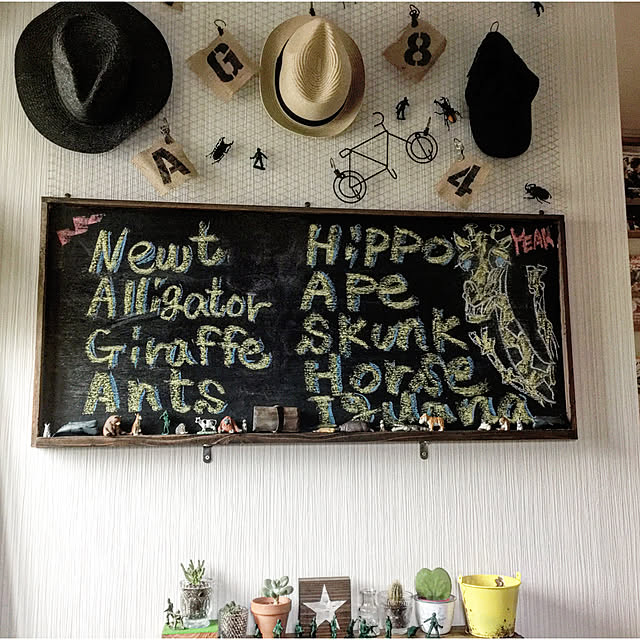 G
8
A
4
Newt
Alligator
Giraffe
Ants
Hippo
Ape
Skunk
Horse
Iguana
YEAH